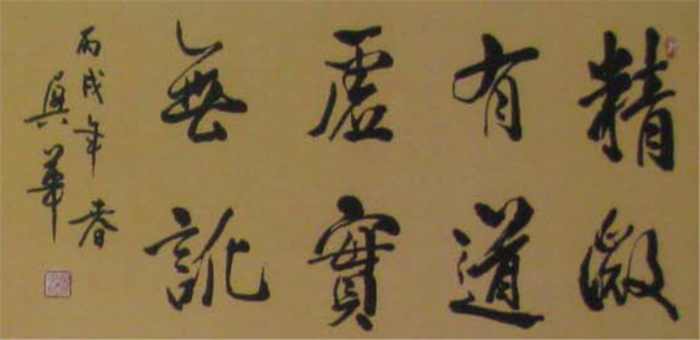 精微
有道
虛實
無訛
丙戌年春
興華